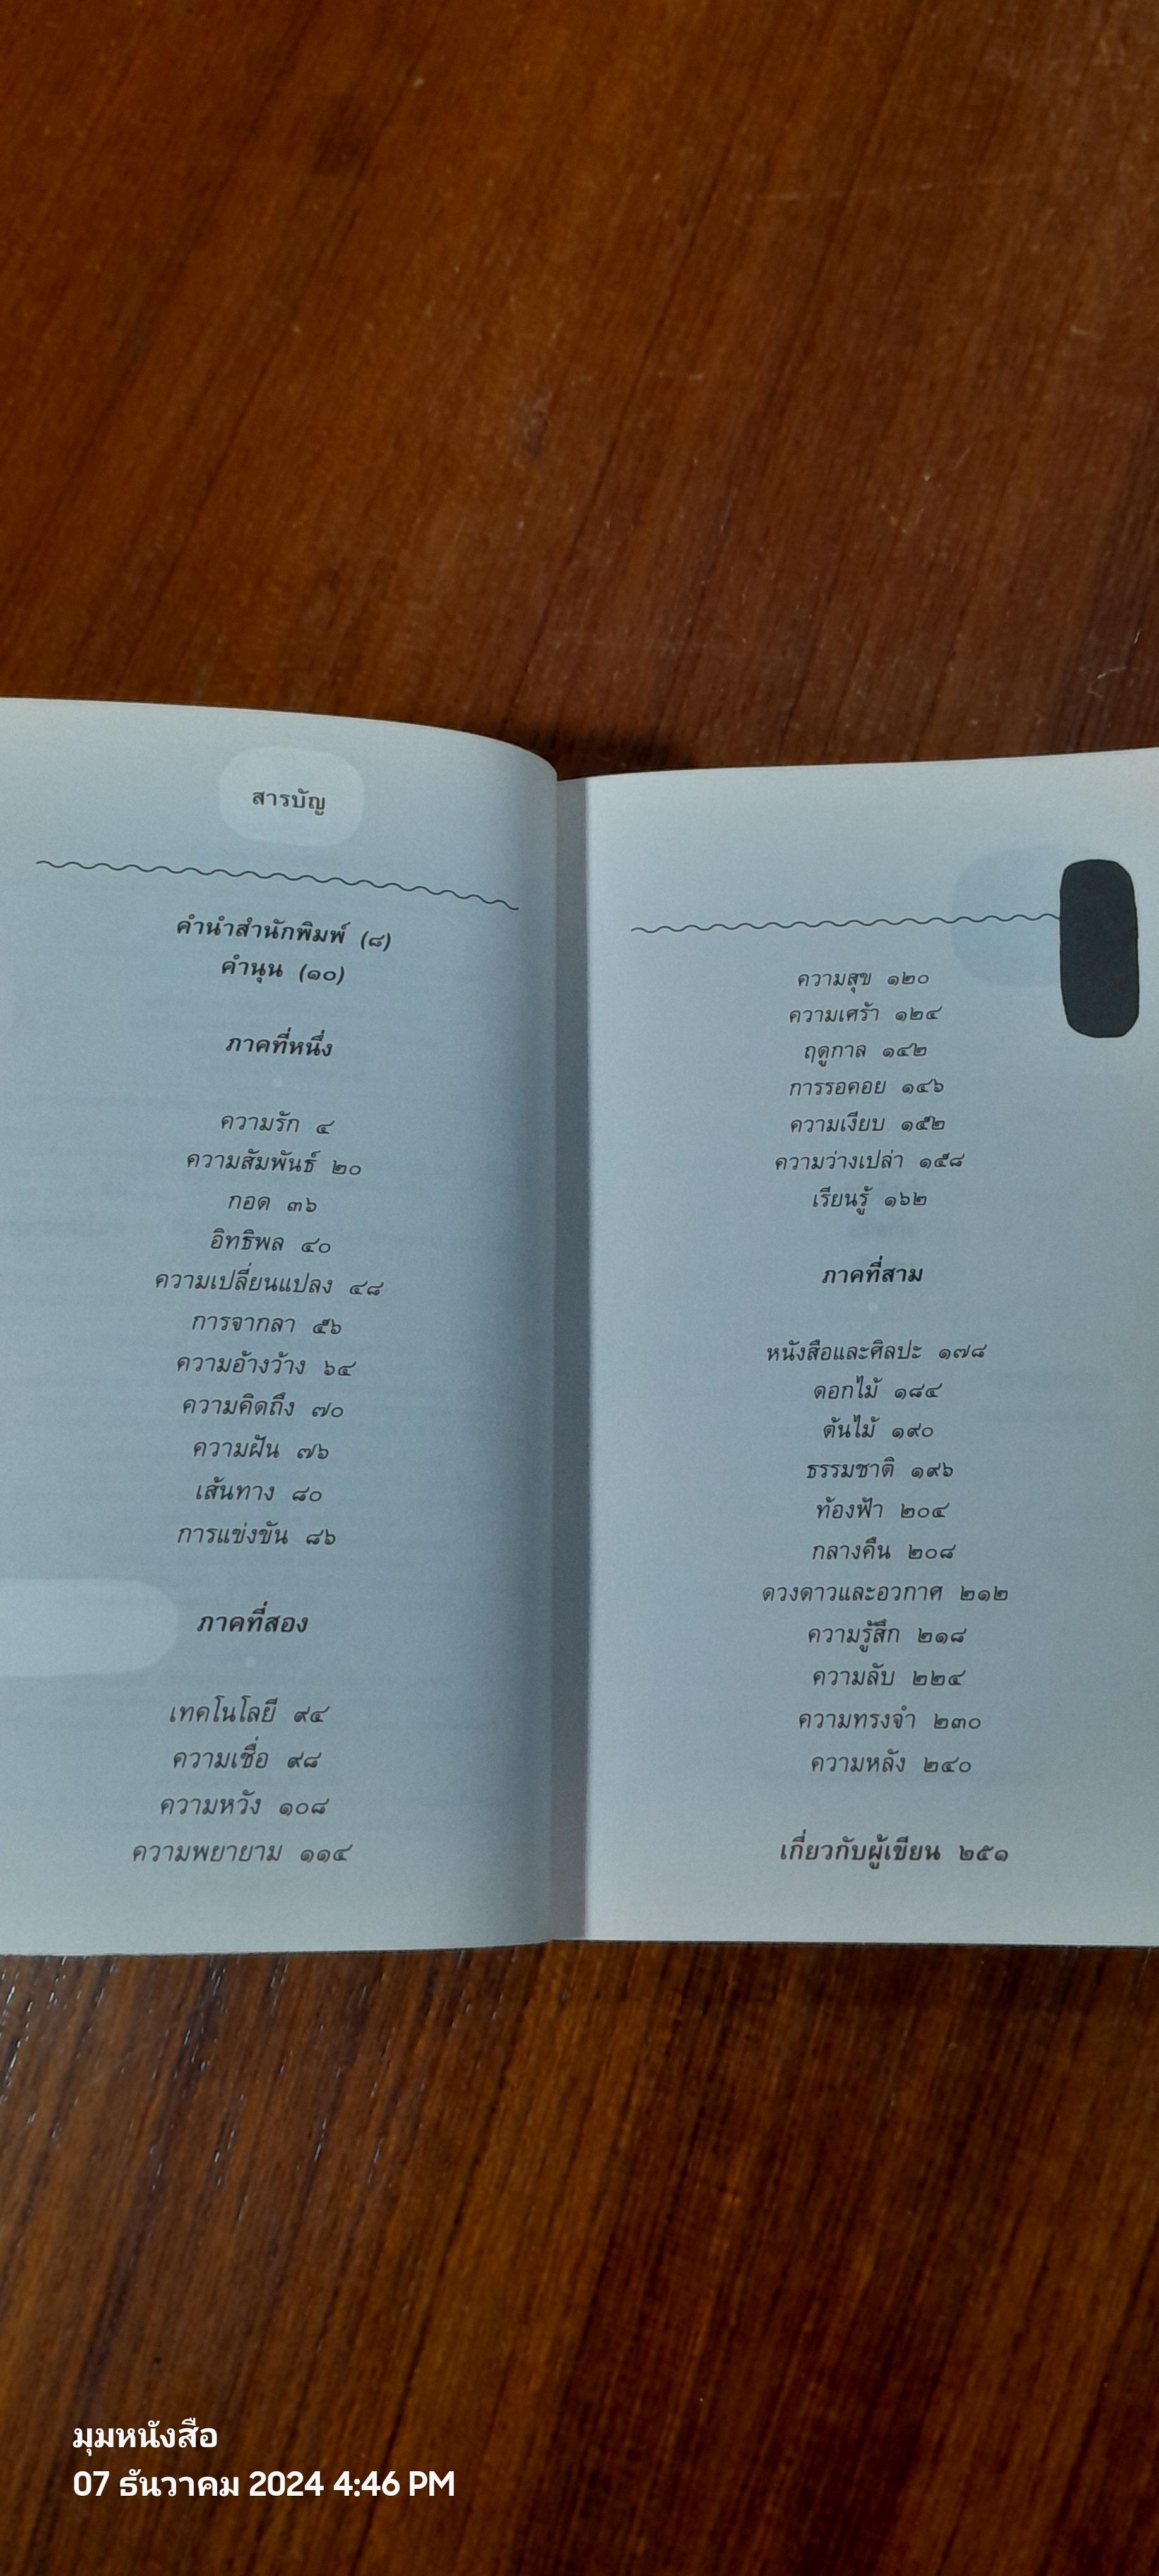 สารบัญ
คำนำสำนักพิมพ์ (๘)
คำนุน (๑๐)
ภาคที่หนึ่ง
ความรัก ๔
ความสัมพันธ์ ๒๐
กอด ๓๖
อิทธิพล ๔๐
ความเปลี่ยนแปลง ๔๘
การจากลา ๕๖
ความอ้างว้าง ๖๔
ความคิดถึง ๗๐
ความฝัน ๗๖
เส้นทาง ๘๐
การแข่งขัน ๘๖
ภาคที่สอง
เทคโนโลยี ๙๔
ความเชื่อ ๙๘
ความหวัง ๑๐๘
ความพยายาม ๑๑๔
ความสุข ๑๒๐
ความเศร้า ๑๒๔
ฤดูกาล ๑๔๒
การรอคอย ๑๔๖
ความเงียบ ๑๕๒
ความว่างเปล่า ๑๕๘
เรียนรู้ ๑๖๒
ภาคที่สาม
หนังสือและศิลปะ ๑๗๘
ดอกไม้ ๑๘๔
ต้นไม้ ๑๙๐
ธรรมชาติ ๑๙๖
ท้องฟ้า ๒๐๔
กลางคืน ๒๐๘
ดวงดาวและอวกาศ ๒๑๒
ความรู้สึก ๒๑๘
ความลับ ๒๒๔
ความทรงจำ ๒๓๐
ความหลัง ๒๔๐
เกี่ยวกับผู้เขียน ๒๕๑
มุมหนังสือ
07 ธันวาคม 2024 4:46 PM